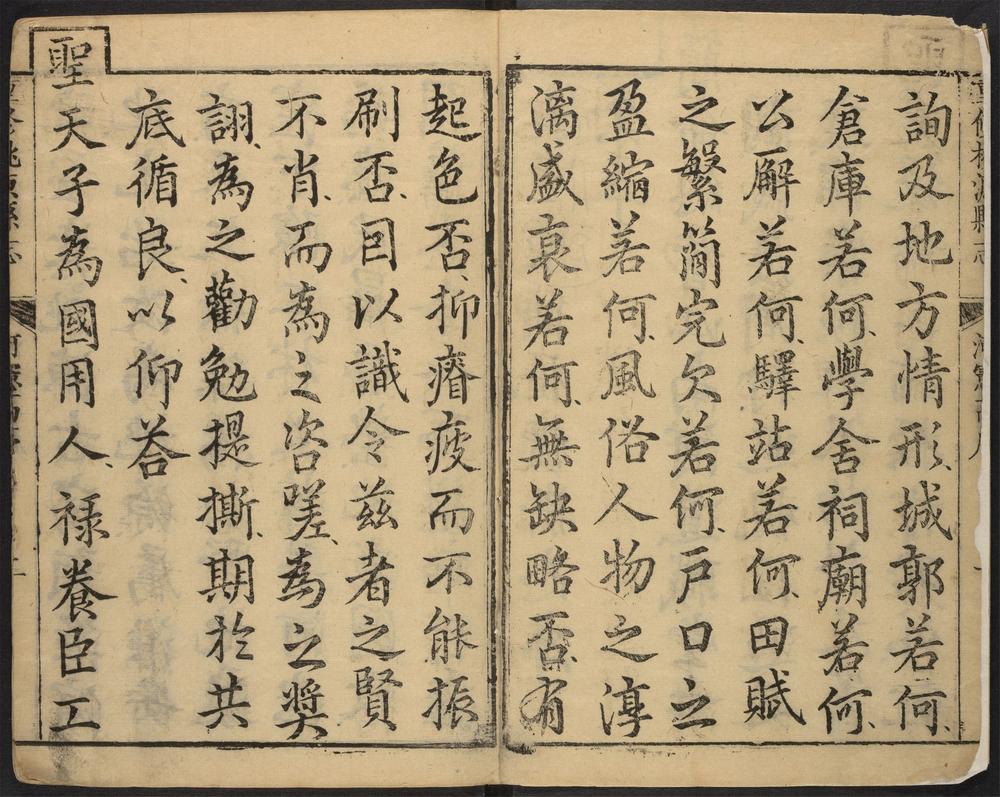 詢及地方情形、城郭若何、
倉庫若何、學舍祠廟若何、
公廨若何、驛站若何、田賦
之繁簡完欠若何、戶口之
盈縮若何、風俗人物之淳
漓盛衰若何、無缺略否、有
起色否、抑瘠疲而不能振
刷否、因以識令茲者之賢
不肖、而為之咨嗟、為之奬
詡、為之勸勉提撕、期於共
底循良、以仰荅
聖天子為國用人、祿養臣工